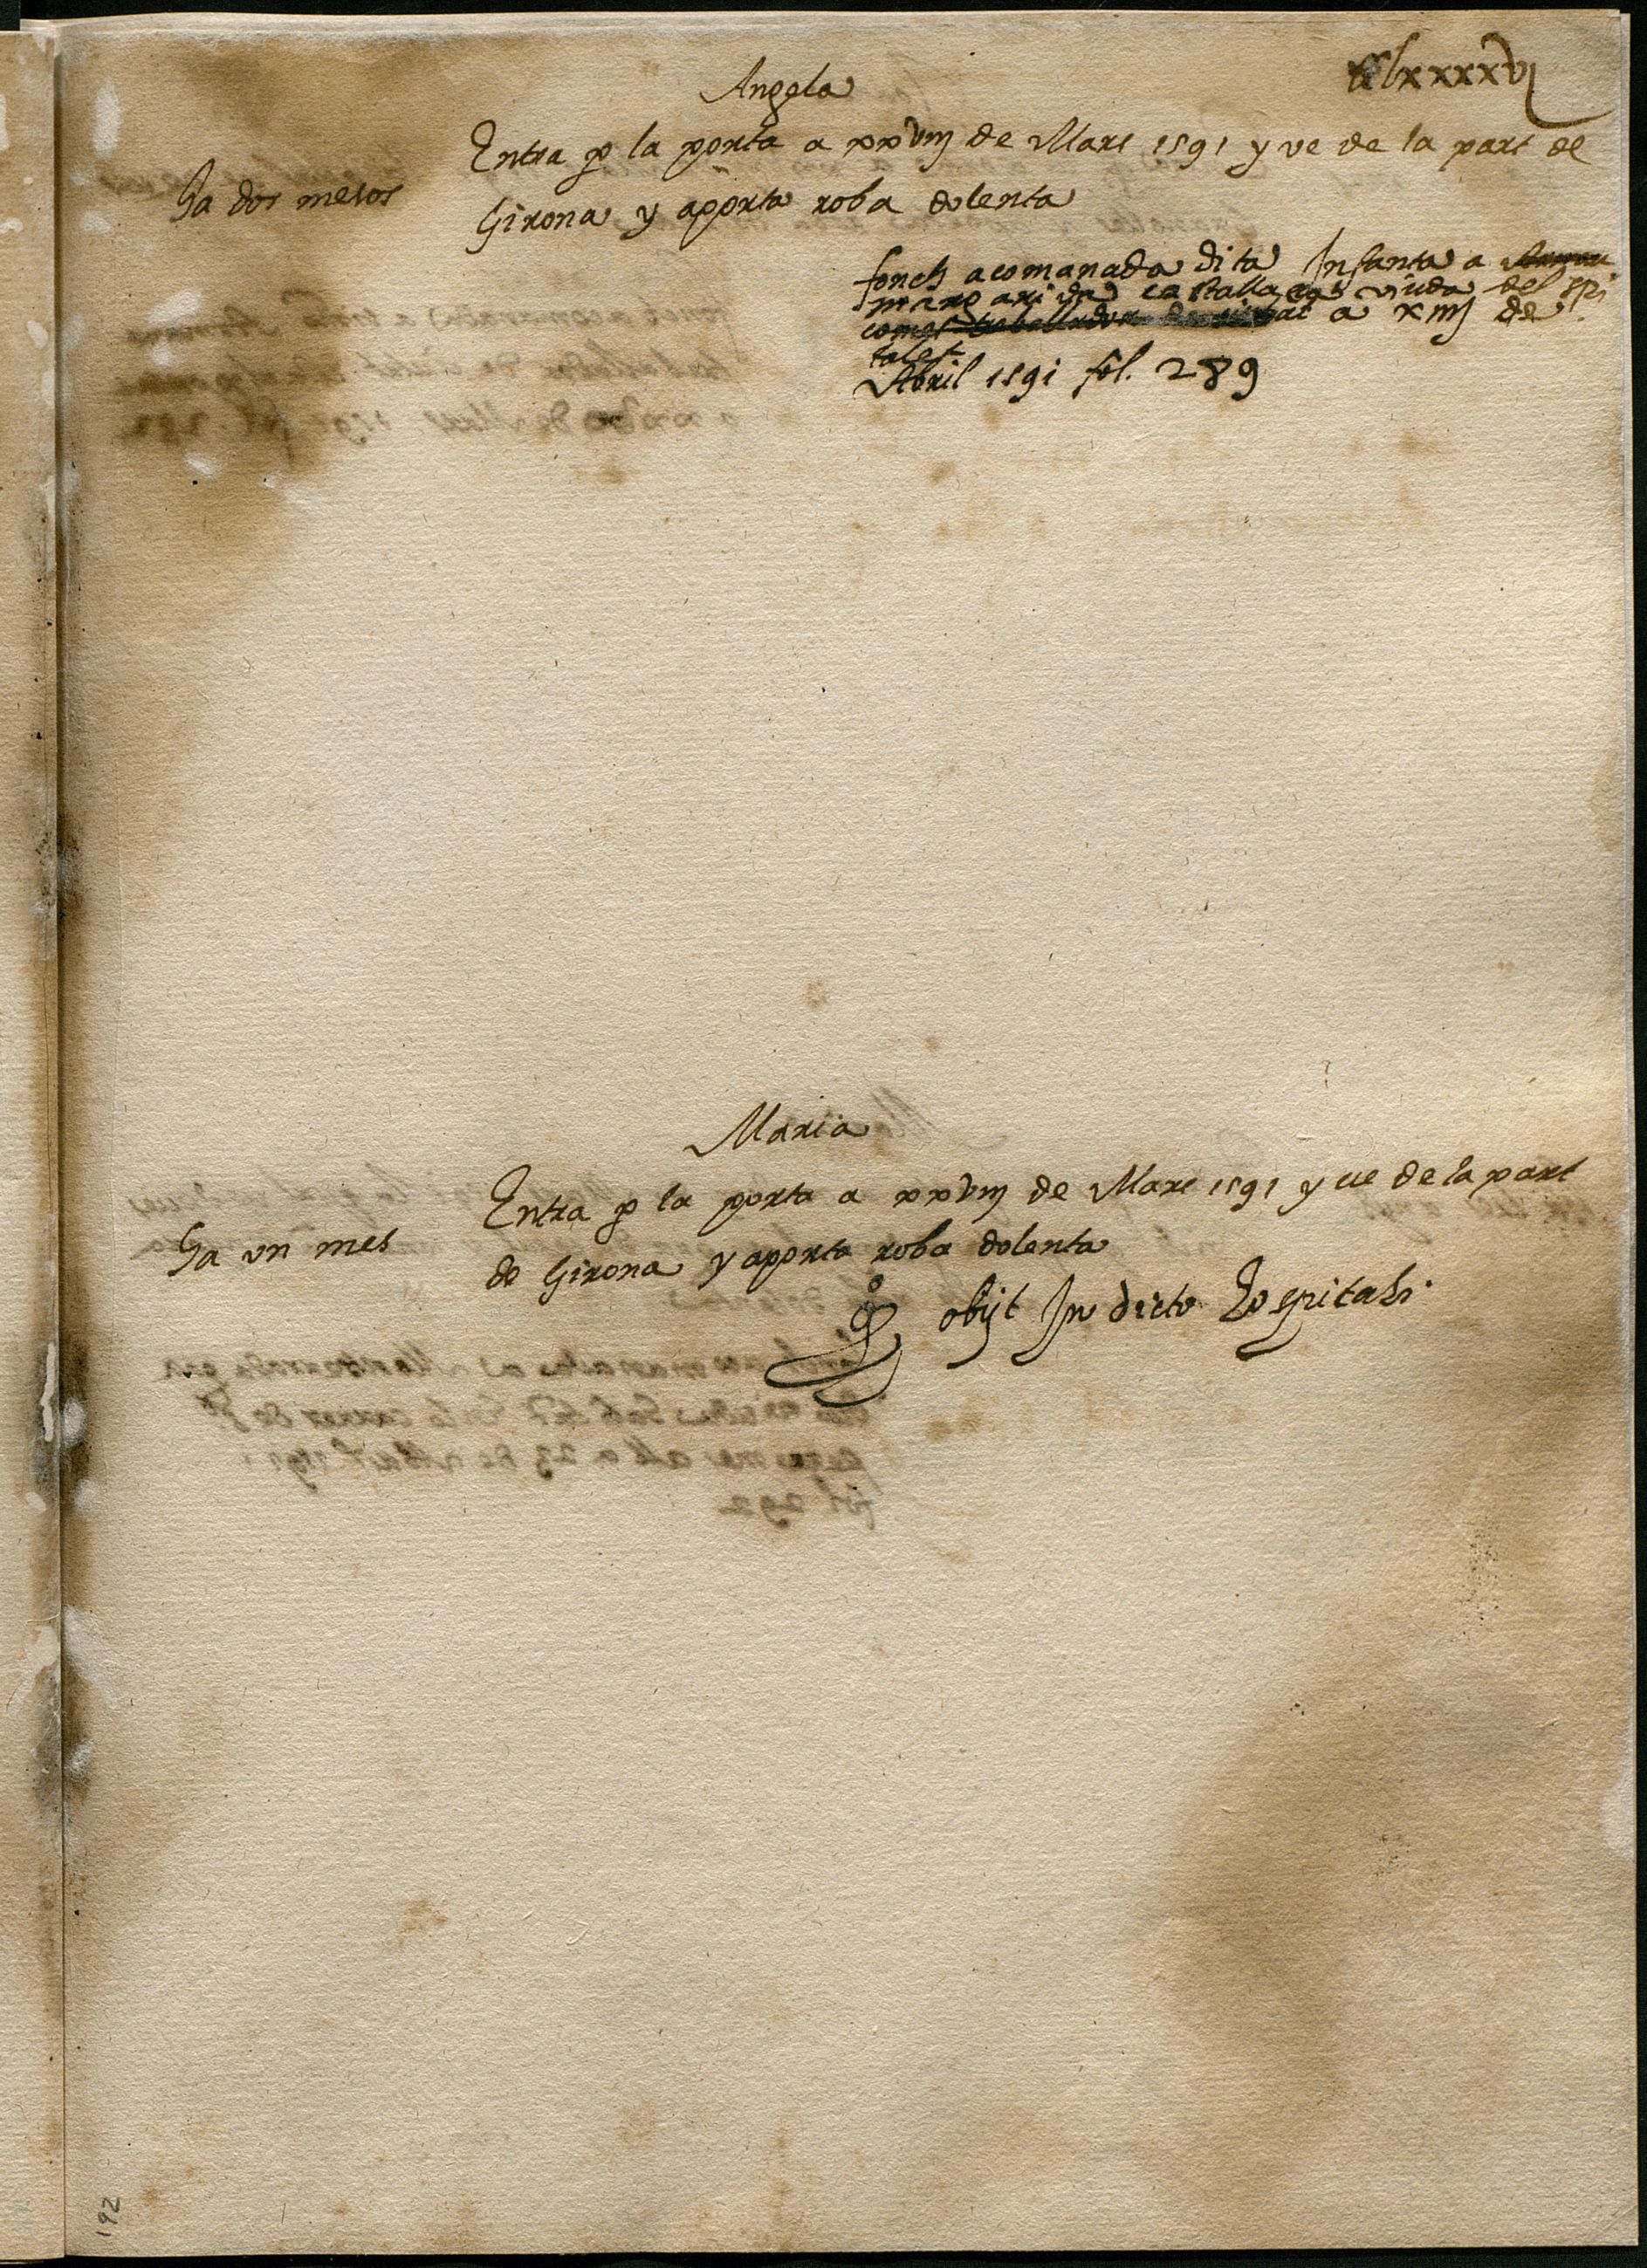 lxxxxvj
Angela
Entra p la porta a xxviij de Mars 1591 y ve de la part de
Ha dos mesos
Girona y aporta roba dolenta
fonch acomanada dita Infanta a
margarida viuda del spi
a xiiij de
tal
Abril 1591 fol. 289
Maria
Entra p la porta a xxviij de Mars 1591 y ve de la part
Ha vn mes
de Girona y aporta roba dolenta
obijt In dicto Hospitali
192